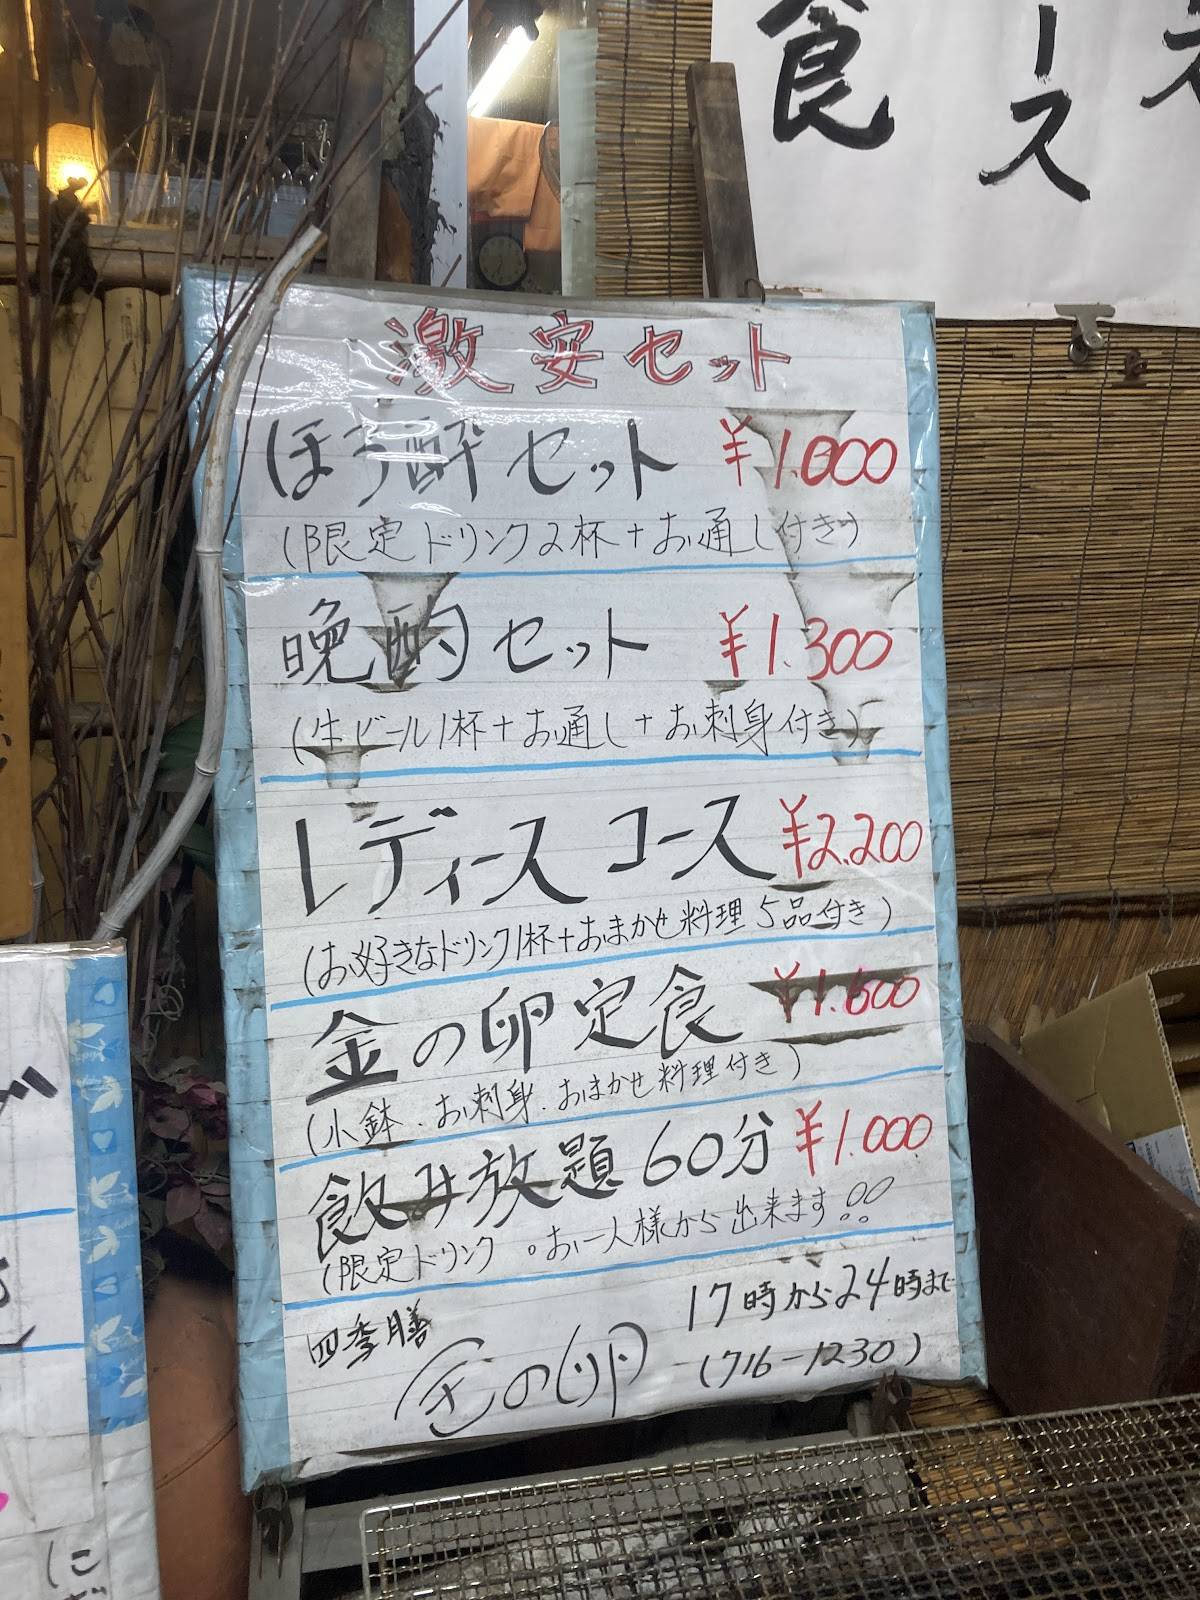 食
ース
激安セット
ほろ酔セット ¥1.000
(限定ドリンク2杯+お通し付き)
晩酌セット ¥1.300
(生ビール1杯+お通し+お刺身付き)
レディースコース ¥2.200
(お好きなドリンク1杯+おまかせ料理5品付き)
金の卵定食 ¥1.600
(小鉢、お刺身、おまかせ料理付き)
飲み放題60分 ¥1.000
(限定ドリンク 。お一人様から出来ます!!
四季膳 17時から24時まで
金の卵 (716-1230)
に